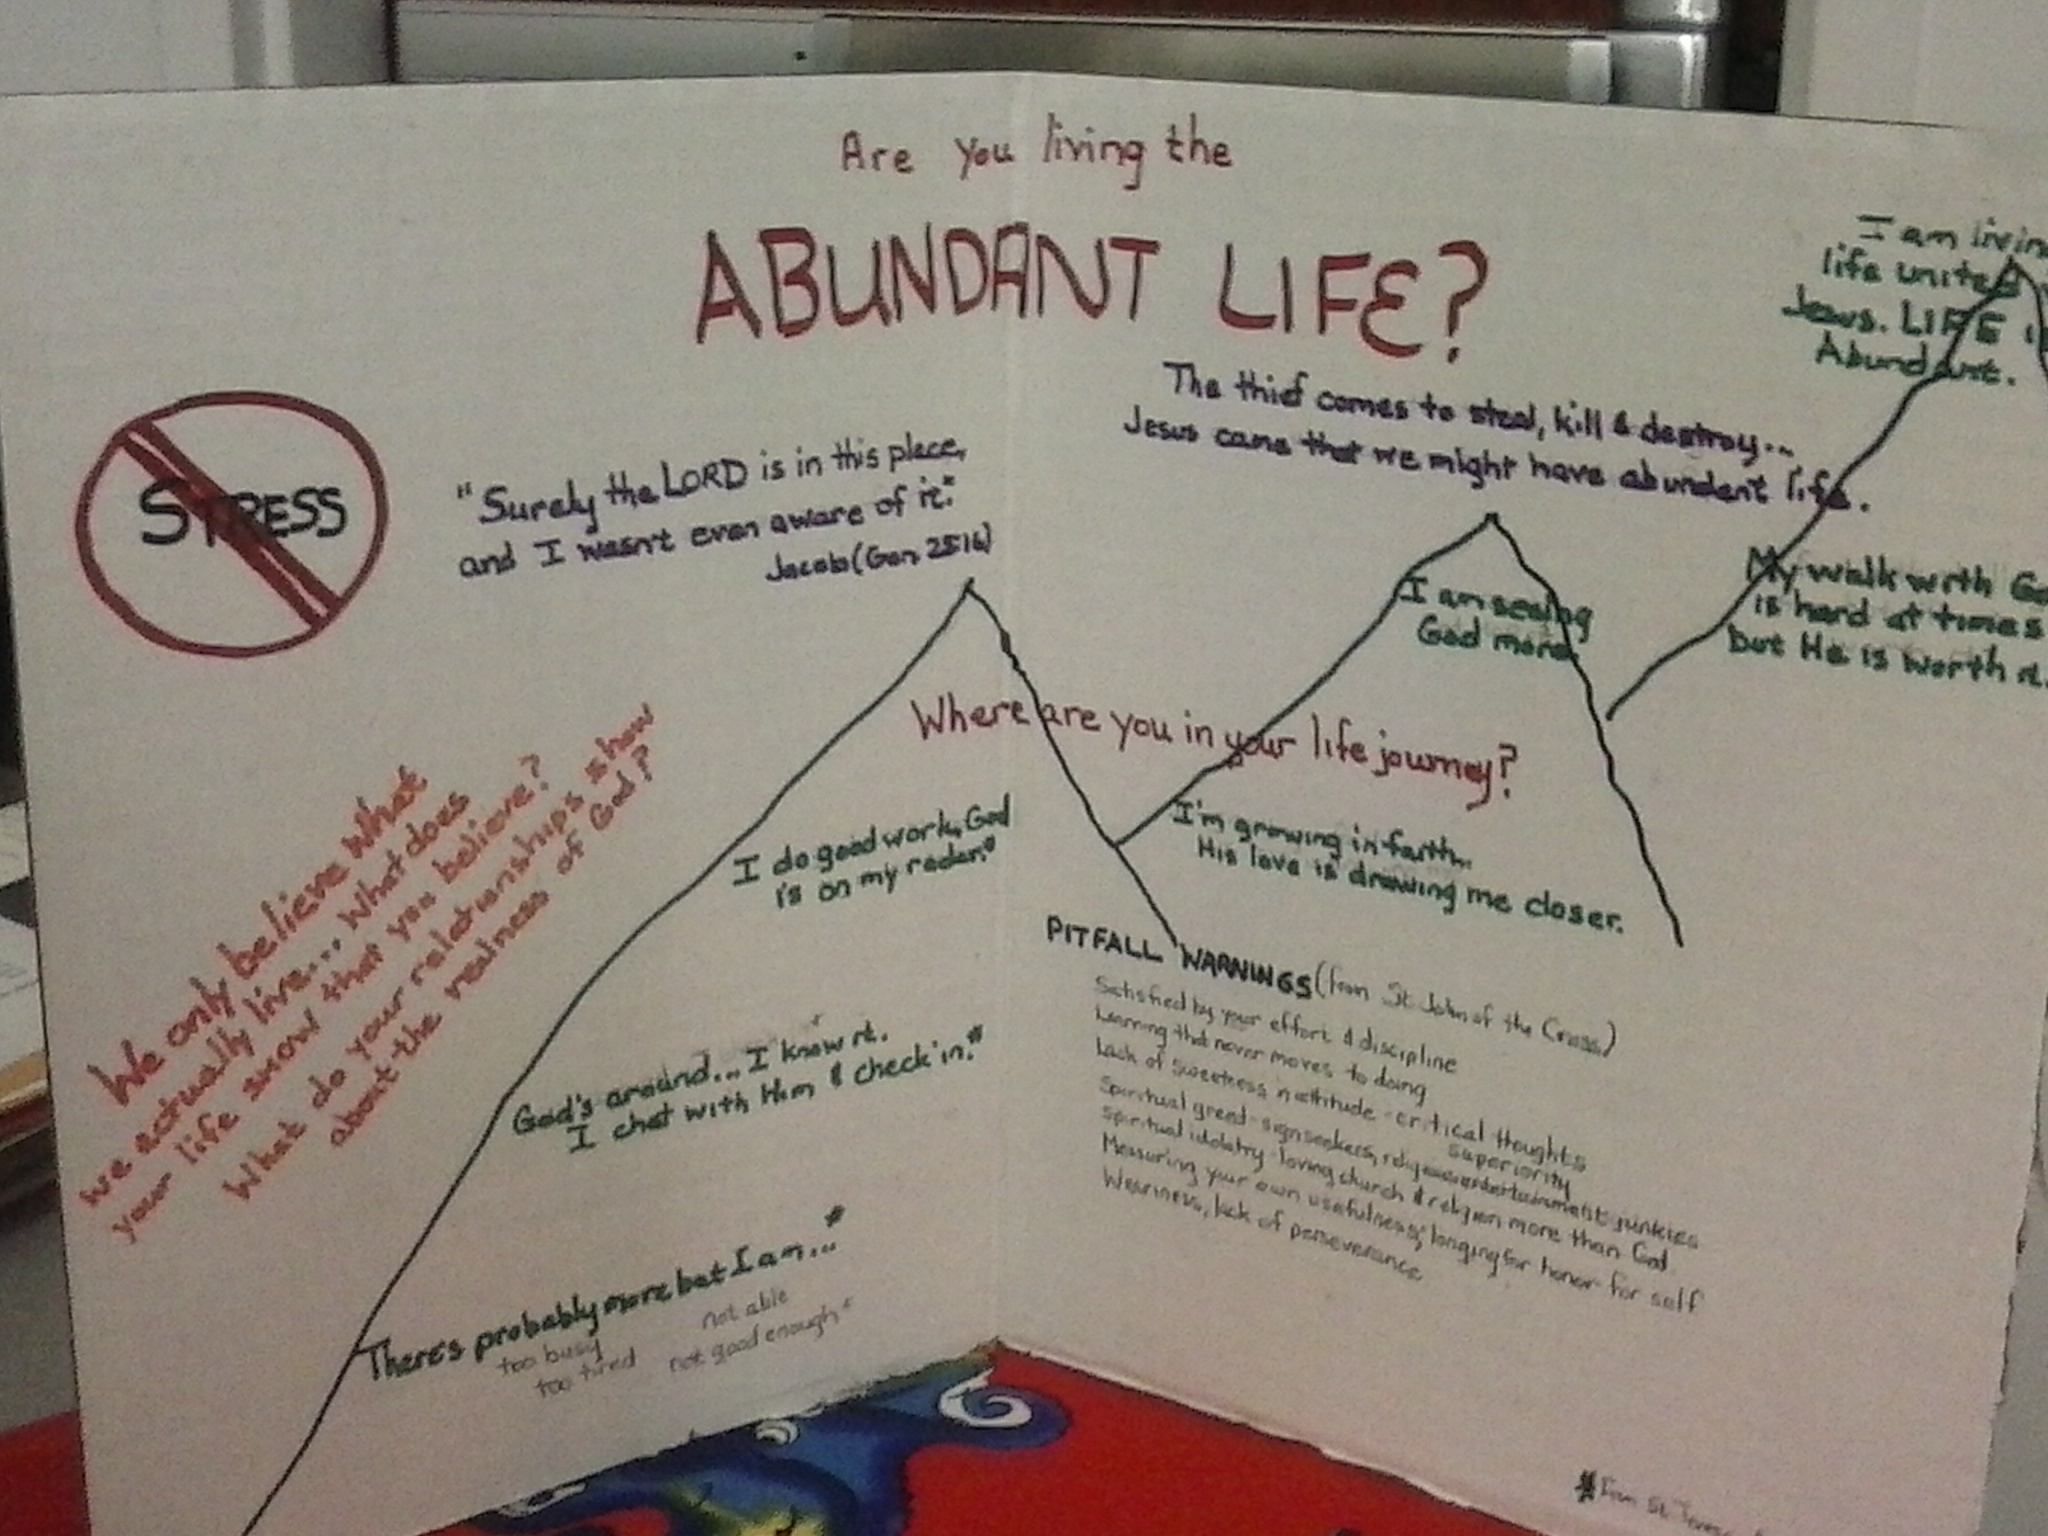 Are you living the
ABUNDANT LIFE?
STRESS
"Surely the LORD is in this place,
and I wasn't even aware of it."
Jacob (Gen. 28:16)
The thief comes to steal, kill & destroy...
Jesus came that we might have abundant life.
I am living
life united
Jesus. LIFE is
Abundant.
My walk with Go
is hard at times
but He is worth it.
I am seeing
God more.
Where are you in your life journey?
I'm growing in faith...
His love is drawing me closer.
I do good work, God
is on my radar.*
God's around... I know it.
I chat with Him & check in.*
There's probably more but I am...*
too busy
too tired
not able
not good enough*
We only believe what
we actually live... What does
your life show that you believe?
What do your relationships show
about the realness of God?
PITFALL WARNINGS (from St. John of the Cross)
Satisfied by your effort & discipline
Learning that never moves to doing
Lack of sweetness in attitude - critical thoughts
superiority
Spiritual greed - sign seekers, religious entertainment junkies
Spiritual idolatry - loving church & religion more than God
Measuring your own usefulness; longing for honor for self
Weariness, lack of perseverance
* From St.